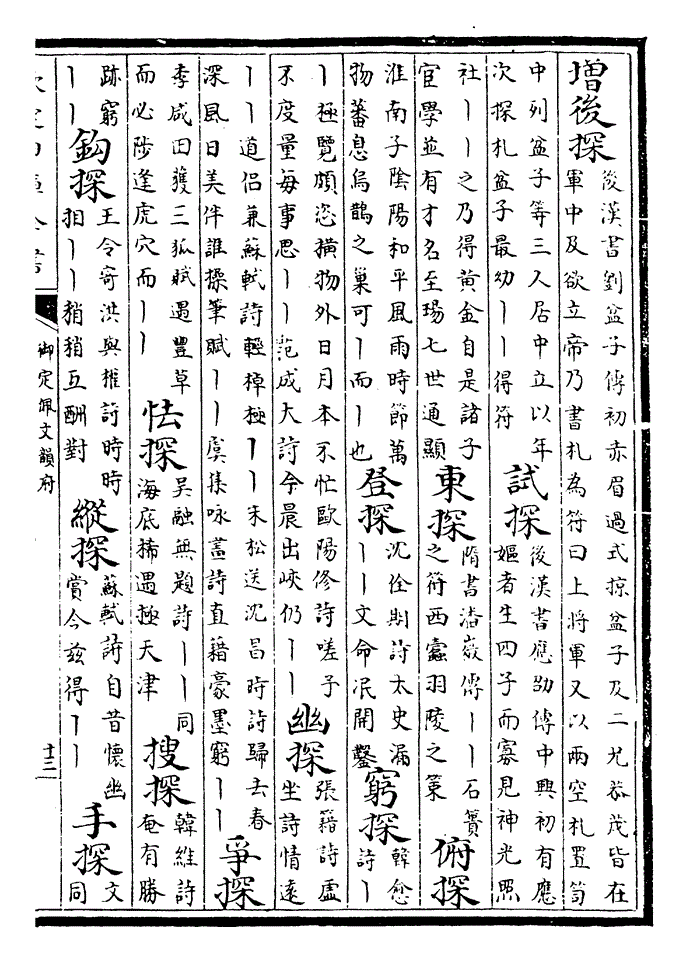 增後探
後漢書劉盆子傳初赤眉過式掠盆子及二兄恭茂皆在
軍中及欲立帝乃書札為符曰上將軍又以兩空札置笥
中列盆子等三人居中立以年
次探札盆子最幼丨丨得符
試探
後漢書應劭傳中興初有應
嫗者生四子而寡見神光照
社丨丨之乃得黃金自是諸子
宦學並有才名至瑒七世通顯
東探
隋書潘徽傳丨丨石簣
之符西蠹羽陵之策
俯探
淮南子陰陽和平風雨時節萬
物蕃息烏鵲之巢可丨而丨也
登探
沈佺期詩太史漏
丨丨文命冺開鑿
窮探
韓愈
詩丨
丨極覽頗恣橫物外日月本不忙歐陽修詩嗟予
不度量每事思丨丨范成大詩今晨出峽仍丨丨
幽探
張籍詩虛
坐詩情遠
丨丨道侶兼蘇軾詩輕棹極丨丨朱松送沈昌時詩歸去春
深風日美伴誰操筆賦丨丨虞集咏畫詩直藉豪墨窮丨丨
爭探
李咸田獲三狐賦遇豐草
而必陟逢虎穴而丨丨
怯探
吳融無題詩丨丨同
海底稀遇極天津
搜探
韓維詩
奄有勝
跡窮
丨丨
鈎探
王令寄洪與權詩時時
相丨丨稍稍互酬對
縱探
蘇軾詩自昔懷幽
賞今茲得丨丨
手探
文
同
欽定四庫全書
御定佩文韻府
十三